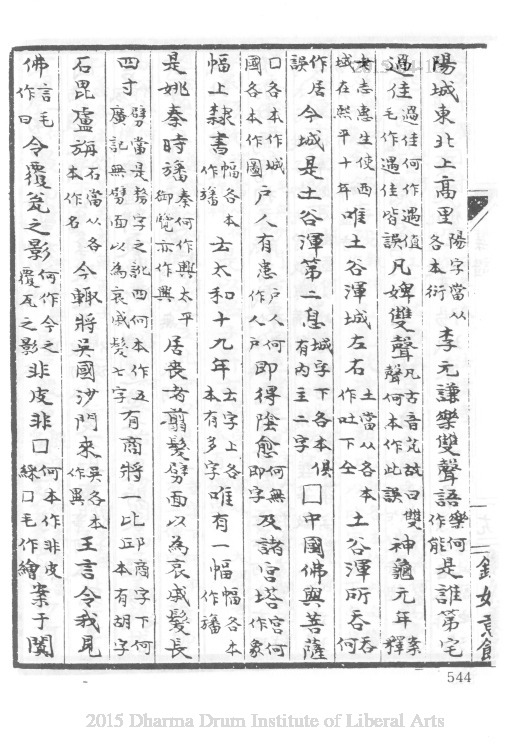 陽城東北上高里陽字當从各本衍李元謙樂雙聲語樂何作能是誰第宅
過佳過佳何作遇值毛作遇佳皆誤凡婢雙聲凡古音芃故曰雙聲何本作此誤神龜元年案釋
老志惠生使西域在熙平十年唯土谷渾城左右土當从各本作吐下仝土谷渾所吞吞何
作居誤今城是土谷渾第二息城字下各本俱有內主二字□中國佛與菩薩
□各本作城國各本作圖戶人有患戶人何作人戶即得陰愈何無即字及諸宮塔宮何作象
幅上隸書幅各本作旛云太和十九年云字上各本有多字唯有一幅幅各本作旛
是姚秦時旛秦何作興太平御覽亦作興居喪者翦髮劈面以為哀戚髮長
四寸劈當是剺字之訛四何本作五廣記無劈面以為哀戚髮七字有商將一比邱商字下何本有胡字
石毘盧旃石當从各本作名今輒將吳國沙門來吳各本作異王言令我見
佛言毛作曰令覆瓮之影何作今之覆瓦之影非皮非□何本作非皮綵□毛作繪案于闐
544
2015 Dharma Drum Institute of Liberal Arts